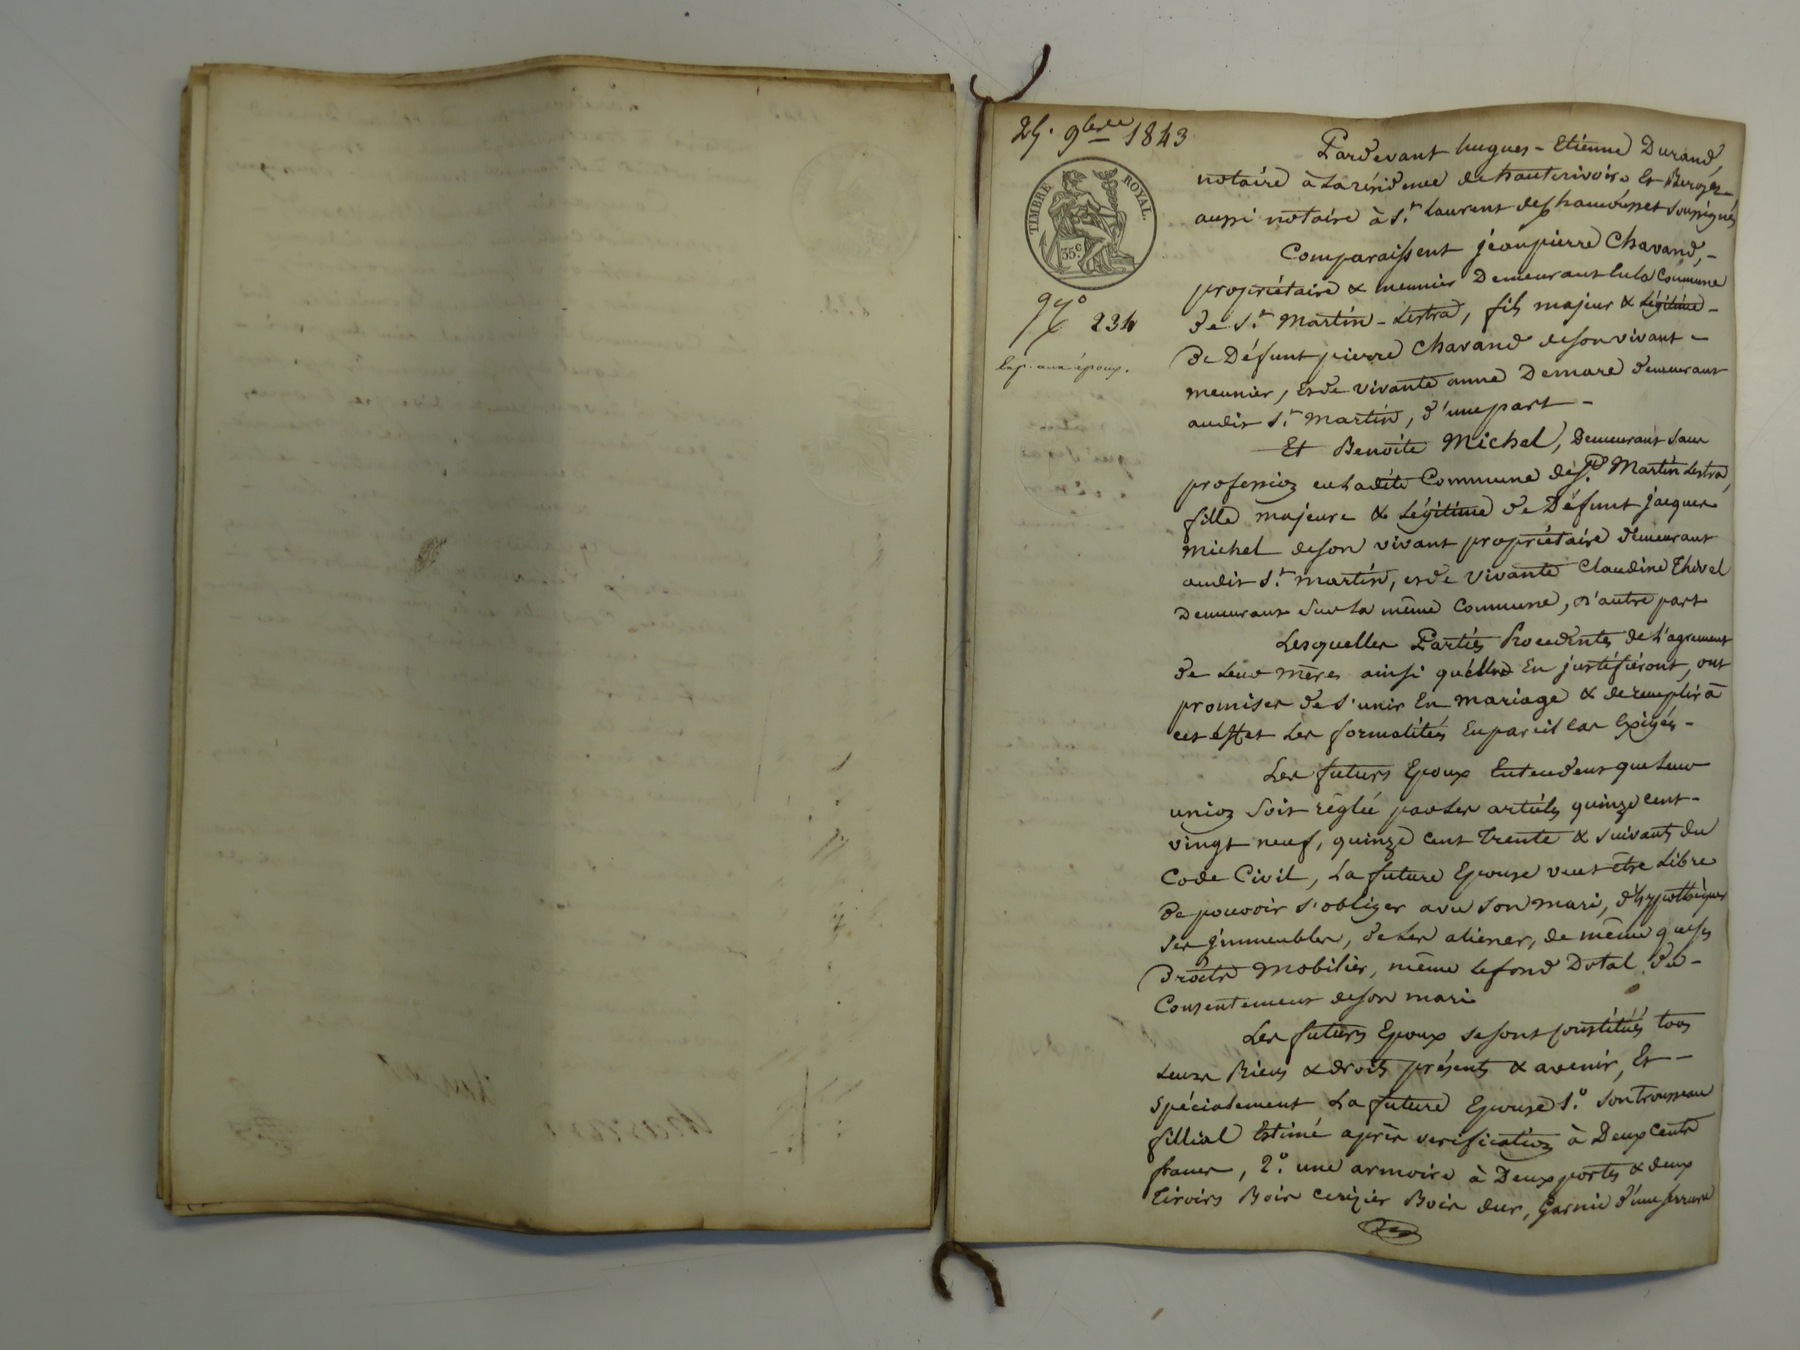 25. 9bre 1843
TIMBRE ROYAL.
35 c
No 234
Exp. aux époux.
Pardevant hugues-Etienne Durand,
notaire à La résidence de hauterivoire Et
aussi notaire à St. Laurent de Chamousset soussignés
Comparaissent jean pierre Chavand, -
propriétaire & meunier Demeurant En la Commune
de St. Martin-Lestra, fils majeur & Légitime -
De Défunt pierre Chavand de son vivant -
meunier, et de vivante anne Demare demeurant
audit St. Martin, d'une part -
Et Benoite Michel, Demeurant sans
profession en Ladite Commune de St. Martin Lestra,
fille majeure & Légitime de Défunt jacques
Michel de son vivant propriétaire demeurant
audit St. Martin, et de vivante Claudine Thivel
Demeurant sur La même Commune, d'autre part
Lesquelles Parties Procédantes de L'agrement
de Leurs mères ainsi qu'elles En justifieront, ont
promises de s'unir En Mariage & de remplir à
cet éffet Les formalités En pareil cas Exigés -
Les futurs Epoux Entendent que Leur
union Soit réglée par Les articles quinze cent -
vingt neuf, quinze cent Trente & suivants du
Code Civil, La future Epouse veut être Libre
De pouvoir s'obliger avec Son mari, d'hypothéquer
Ses immeubles, de Les aliener, de même que ses
Droits Mobiliers, même Le fond Dotal, du -
Consentement de son mari
Les futurs Epoux se sont constitués tous
Leurs Biens & droits présents & avenir, Et -
Spécialement La future Epouse 1.o Son trousseau
fillial Estimé après verification à Deux cents
francs, 2.o une armoire à Deux portes & deux
Tiroirs Bois cerizier Bois dur, Garnie d'une serrure